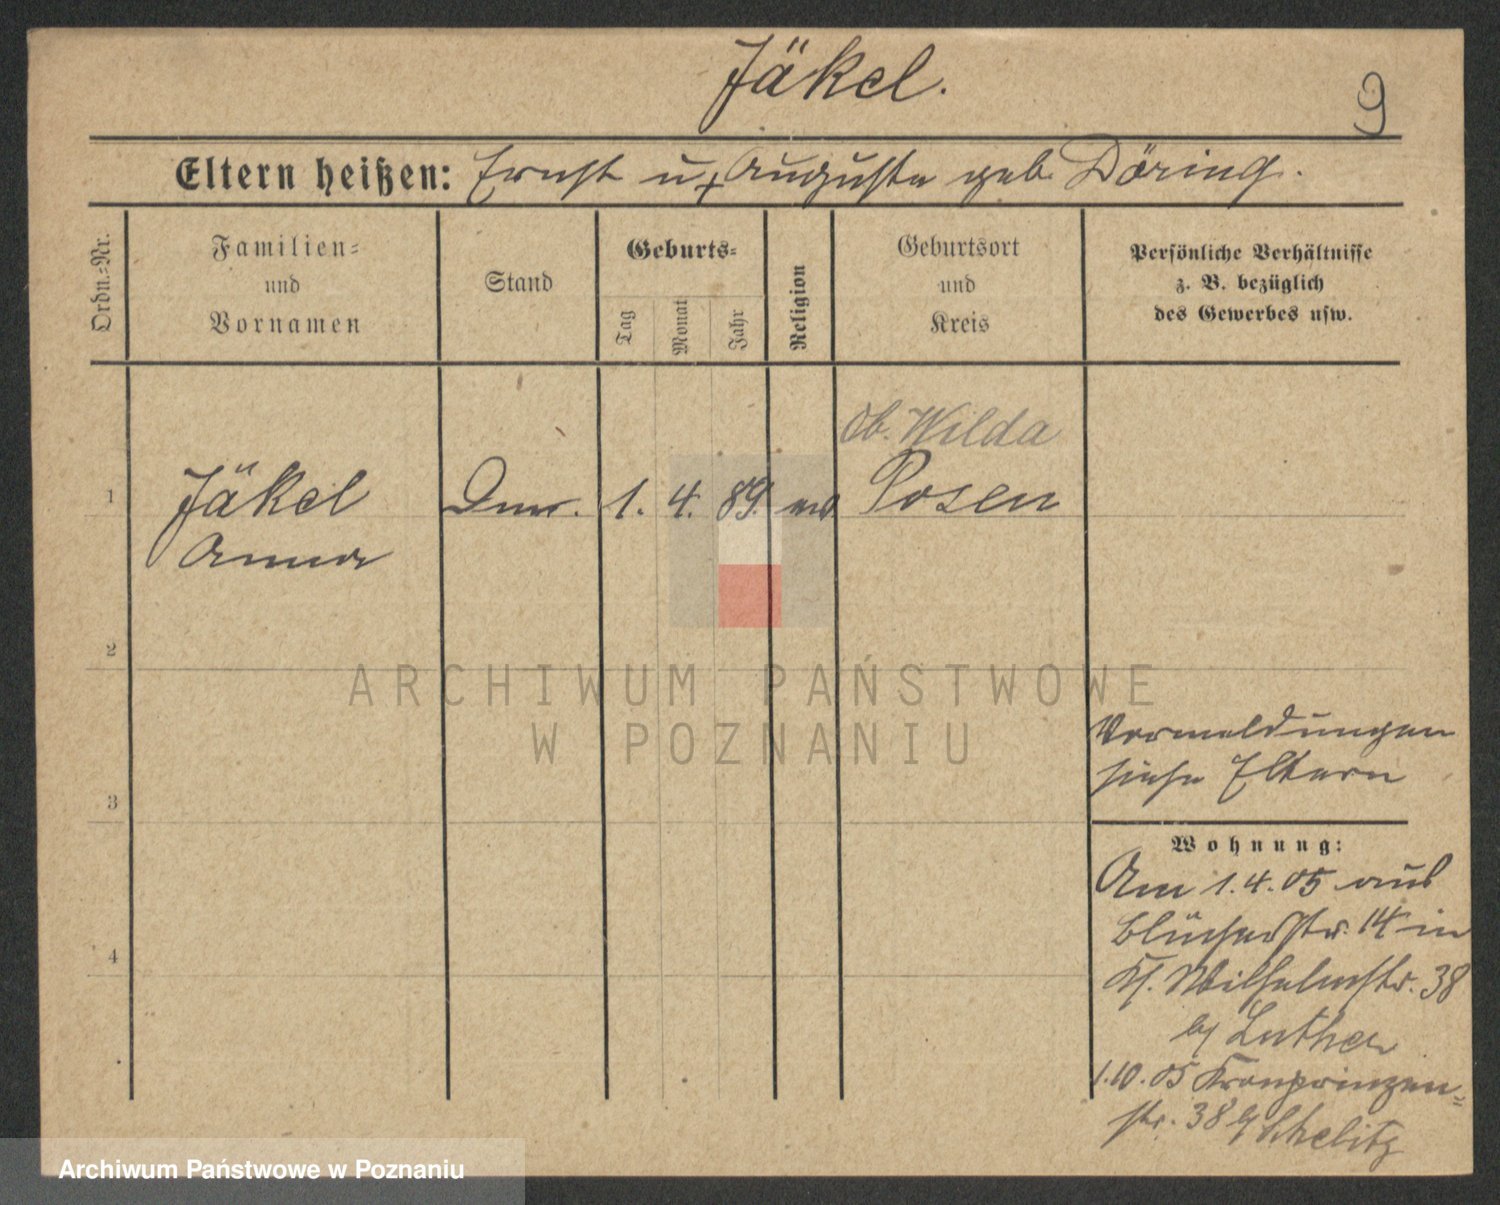 Jäkel.
9
Eltern heißen: Ernst u. Auguste geb. Döring.
Ordn.=Nr.
Familien=
und
Vornamen
Stand
Geburts=
Tag
Monat
Jahr
Religion
Geburtsort
und
Kreis
Persönliche Verhältnisse
z. B. bezüglich
des Gewerbes usw.
Ob. Wilda
1 Jäkel 1. 4. 89. Posen
Anna
2
3
4
Vormeldungen
siehe Eltern
Wohnung:
Am 1.4.05 aus
Blücherstr. 14 in
Kl. Wilhelmstr. 38
Luther
1.10.05 Kronprinzen=
str. 38
ARCHIWUM PAŃSTWOWE
W POZNANIU
Archiwum Państwowe w Poznaniu